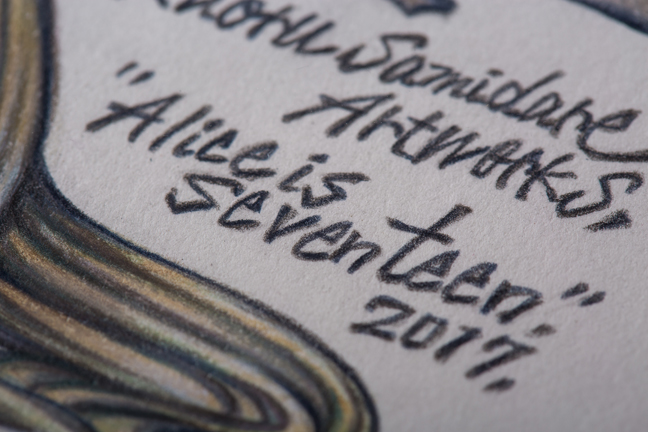 Samidare
Artworks,
"Alice is
seventeen".
2017.